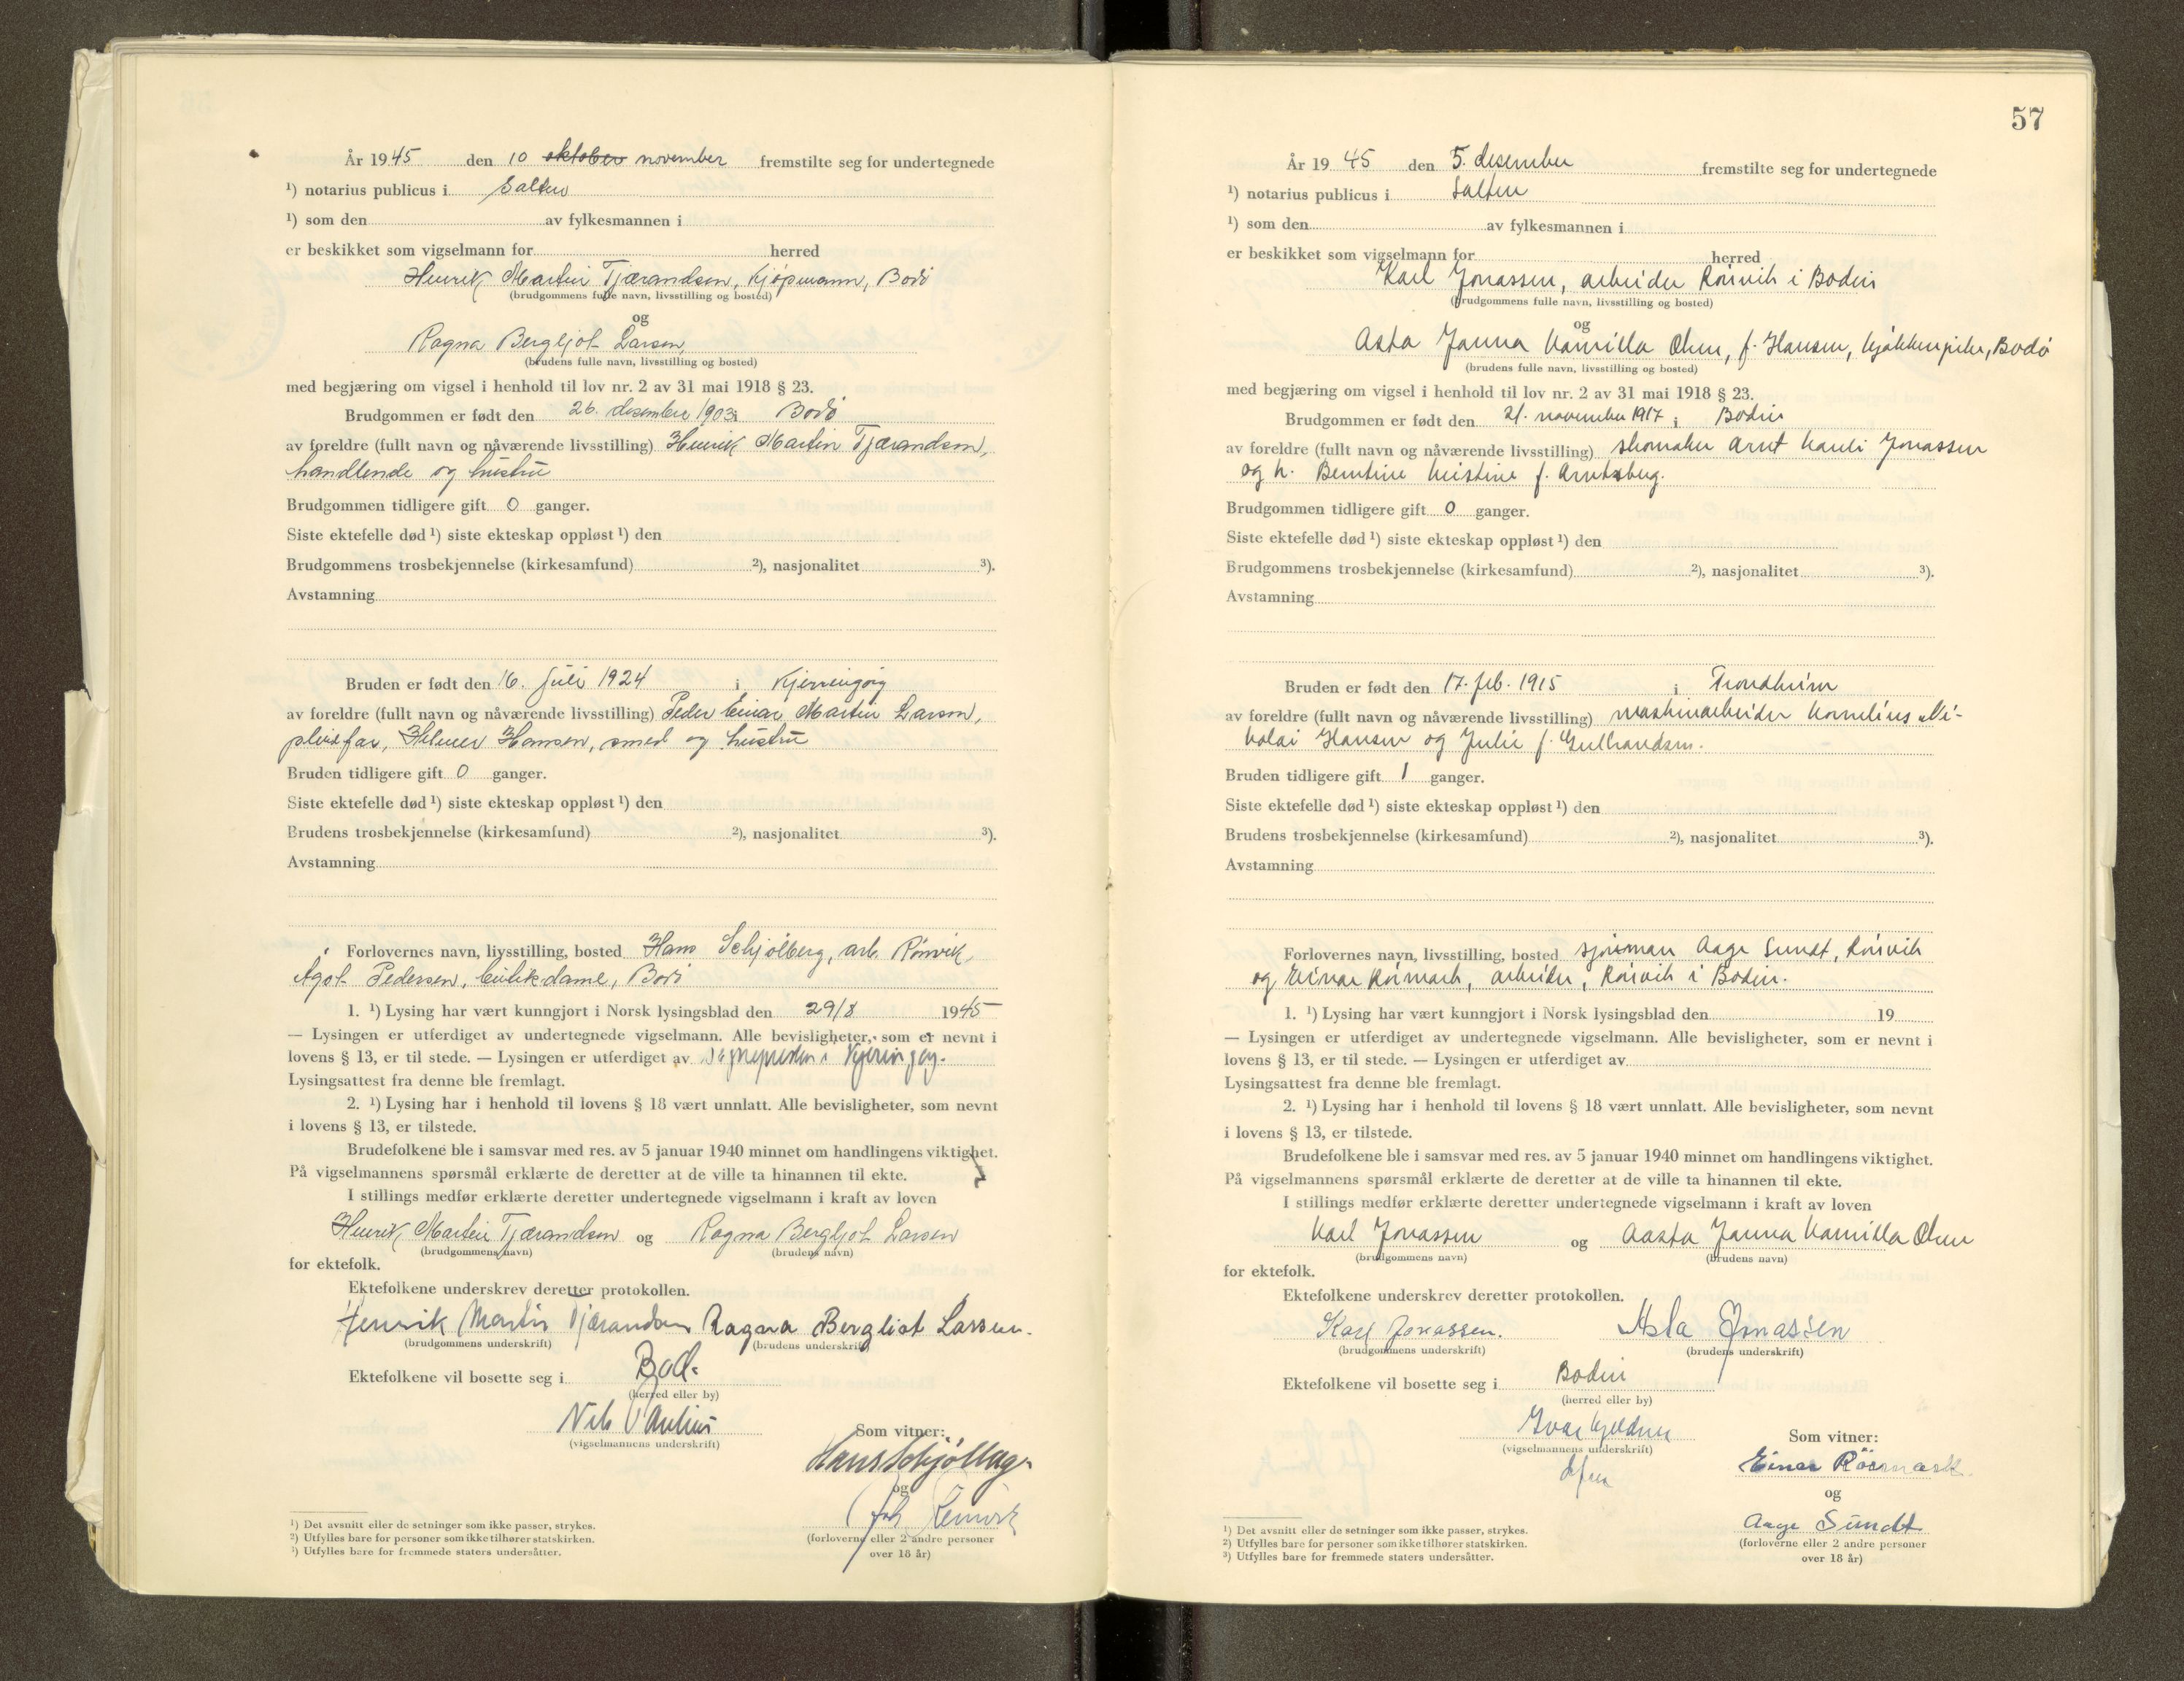 År 1945 den 10 oktober november fremstilte seg for undertegnede
¹) notarius publicus i Salten
¹) som den av fylkesmannen i
er beskikket som vigselmann for herred
Henrik Martin Tjærandsen, kjøpmann, Bodø
(brudgommens fulle navn, livsstilling og bosted)
og
Ragna Bergljot Larsen,
(brudens fulle navn, livsstilling og bosted)
med begjæring om vigsel i henhold til lov nr. 2 av 31 mai 1918 § 23.
Brudgommen er født den 26. desember 1903 i Bodø
av foreldre (fullt navn og nåværende livsstilling) Henrik Martin Tjærandsen,
handlende og hustru
Brudgommen tidligere gift 0 ganger.
Siste ektefelle død ¹) siste ekteskap oppløst ¹) den
Brudgommens trosbekjennelse (kirkesamfund) ²), nasjonalitet ³).
Avstamning
Bruden er født den 16. juli 1924 i Kjerringøy
av foreldre (fullt navn og nåværende livsstilling) Peder Einar Martin Larsen,
pleiefar, Hilmer Hansen, smed og hustru
Bruden tidligere gift 0 ganger.
Siste ektefelle død ¹) siste ekteskap oppløst ¹) den
Brudens trosbekjennelse (kirkesamfund) ²), nasjonalitet ³).
Avstamning
Forlovernes navn, livsstilling, bosted Hans Schjølberg, arb. Rønvik,
Agot Pedersen, butikdame, Bodø
1. ¹) Lysing har vært kunngjort i Norsk lysingsblad den 29/8 1945
— Lysingen er utferdiget av undertegnede vigselmann. Alle bevisligheter, som er nevnt i
lovens § 13, er til stede. — Lysingen er utferdiget av sognepresten i Kjerringøy.
Lysingsattest fra denne ble fremlagt.
2. ¹) Lysing har i henhold til lovens § 18 vært unnlatt. Alle bevisligheter, som nevnt
i lovens § 13, er tilstede.
Brudefolkene ble i samsvar med res. av 5 januar 1940 minnet om handlingens viktighet.
På vigselmannens spørsmål erklærte de deretter at de ville ta hinannen til ekte.
I stillings medfør erklærte deretter undertegnede vigselmann i kraft av loven
Henrik Martin Tjærandsen og Ragna Bergljot Larsen
(brudgommens navn) (brudens navn)
for ektefolk.
Ektefolkene underskrev deretter protokollen.
Henrik Martin Tjærandsen Ragna Bergliot Larsen.
(brudgommens underskrift) (brudens underskrift)
Ektefolkene vil bosette seg i Bodø
(herred eller by)
Nils
(vigselmannens underskrift)
Som vitner:
Hans Schjølberg
og
(forloverne eller 2 andre personer
over 18 år)
¹) Det avsnitt eller de setninger som ikke passer, strykes.
²) Utfylles bare for personer som ikke tilhører statskirken.
³) Utfylles bare for fremmede staters undersåtter.
57
År 1945 den 5. desember fremstilte seg for undertegnede
¹) notarius publicus i Salten
¹) som den av fylkesmannen i
er beskikket som vigselmann for herred
Karl Jonassen, arbeider Rönvik i Bodin
(brudgommens fulle navn, livsstilling og bosted)
og
Asta Janna Kamilla Olsen, f. Hansen, kjøkkenpike, Bodø
(brudens fulle navn, livsstilling og bosted)
med begjæring om vigsel i henhold til lov nr. 2 av 31 mai 1918 § 23.
Brudgommen er født den 21. november 1917 i Bodin
av foreldre (fullt navn og nåværende livsstilling) skomaker Arnt Kauli Jonassen
og h. Berntine Kristine f. Arntsberg.
Brudgommen tidligere gift 0 ganger.
Siste ektefelle død ¹) siste ekteskap oppløst ¹) den
Brudgommens trosbekjennelse (kirkesamfund) ²), nasjonalitet ³).
Avstamning
Bruden er født den 17. feb. 1915 i Trondheim
av foreldre (fullt navn og nåværende livsstilling) maskinarbeider Kornelius Ni-
kolai Hansen og Julie f. Gulbrandsen.
Bruden tidligere gift 1 ganger.
Siste ektefelle død ¹) siste ekteskap oppløst ¹) den
Brudens trosbekjennelse (kirkesamfund) ²), nasjonalitet ³).
Avstamning
Forlovernes navn, livsstilling, bosted sjømann Aage Sundt, Rönvik
og Einar Rösmark, arbeider, Rönvik i Bodin.
1. ¹) Lysing har vært kunngjort i Norsk lysingsblad den 19
— Lysingen er utferdiget av undertegnede vigselmann. Alle bevisligheter, som er nevnt i
lovens § 13, er til stede. — Lysingen er utferdiget av
Lysingsattest fra denne ble fremlagt.
2. ¹) Lysing har i henhold til lovens § 18 vært unnlatt. Alle bevisligheter, som nevnt
i lovens § 13, er tilstede.
Brudefolkene ble i samsvar med res. av 5 januar 1940 minnet om handlingens viktighet.
På vigselmannens spørsmål erklærte de deretter at de ville ta hinannen til ekte.
I stillings medfør erklærte deretter undertegnede vigselmann i kraft av loven
Karl Jonassen og Aasta Janna Kamilla Olsen
(brudgommens navn) (brudens navn)
for ektefolk.
Ektefolkene underskrev deretter protokollen.
Karl Jonassen. Asta Jonassen
(brudgommens underskrift) (brudens underskrift)
Ektefolkene vil bosette seg i Bodin
(herred eller by)
Ivar
(vigselmannens underskrift)
Som vitner:
Einar Rösmark
og
Aage Sundt
(forloverne eller 2 andre personer
over 18 år)
¹) Det avsnitt eller de setninger som ikke passer, strykes.
²) Utfylles bare for personer som ikke tilhører statskirken.
³) Utfylles bare for fremmede staters undersåtter.